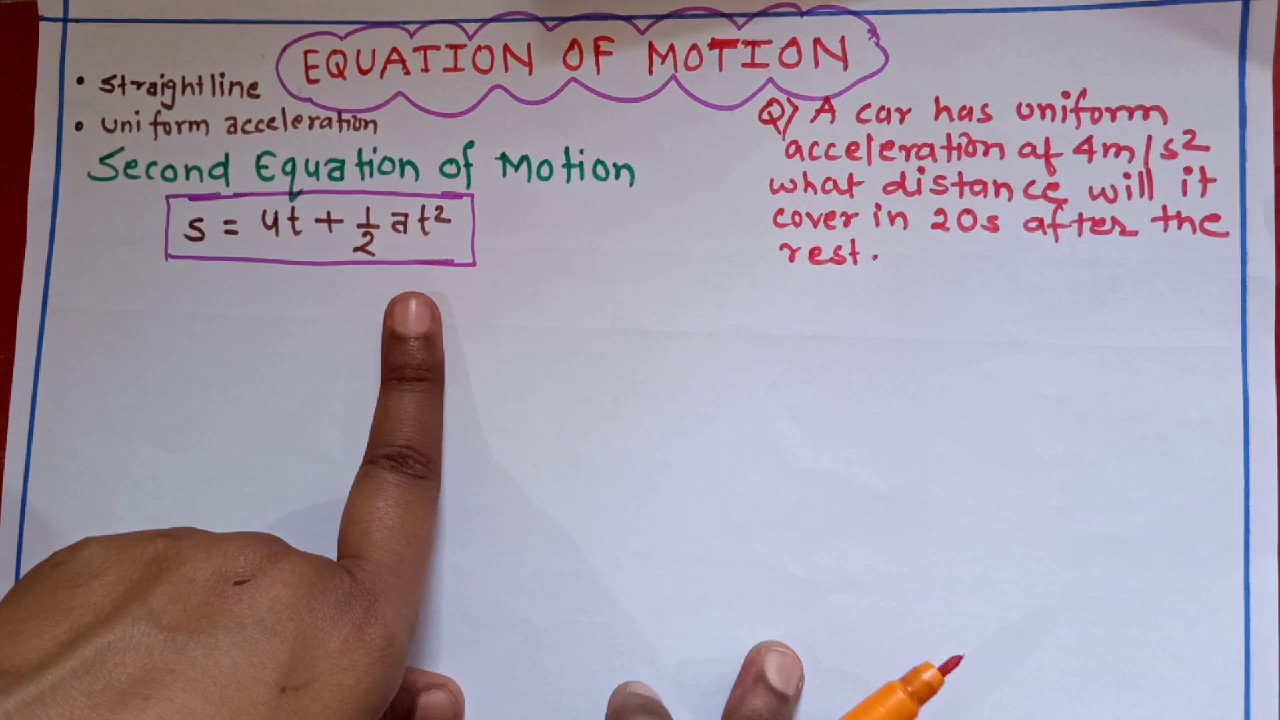 EQUATION OF MOTION
• straight line
• uniform acceleration
Second Equation of Motion
s = ut + 1/2 at²
Q) A car has uniform
acceleration of 4m/s2
what distance will it
cover in 20s after the
rest.